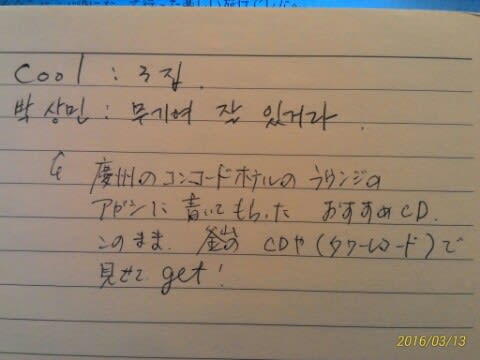 Cool : 3집.
박상민 : 무기여 잘 있거라.
慶州のコンコードホテルのラウンジの
アガシに書いてもらった おすすめCD.
このまま、釜山の CDや(タワーレコード)で
見せて get!
2016/03/13